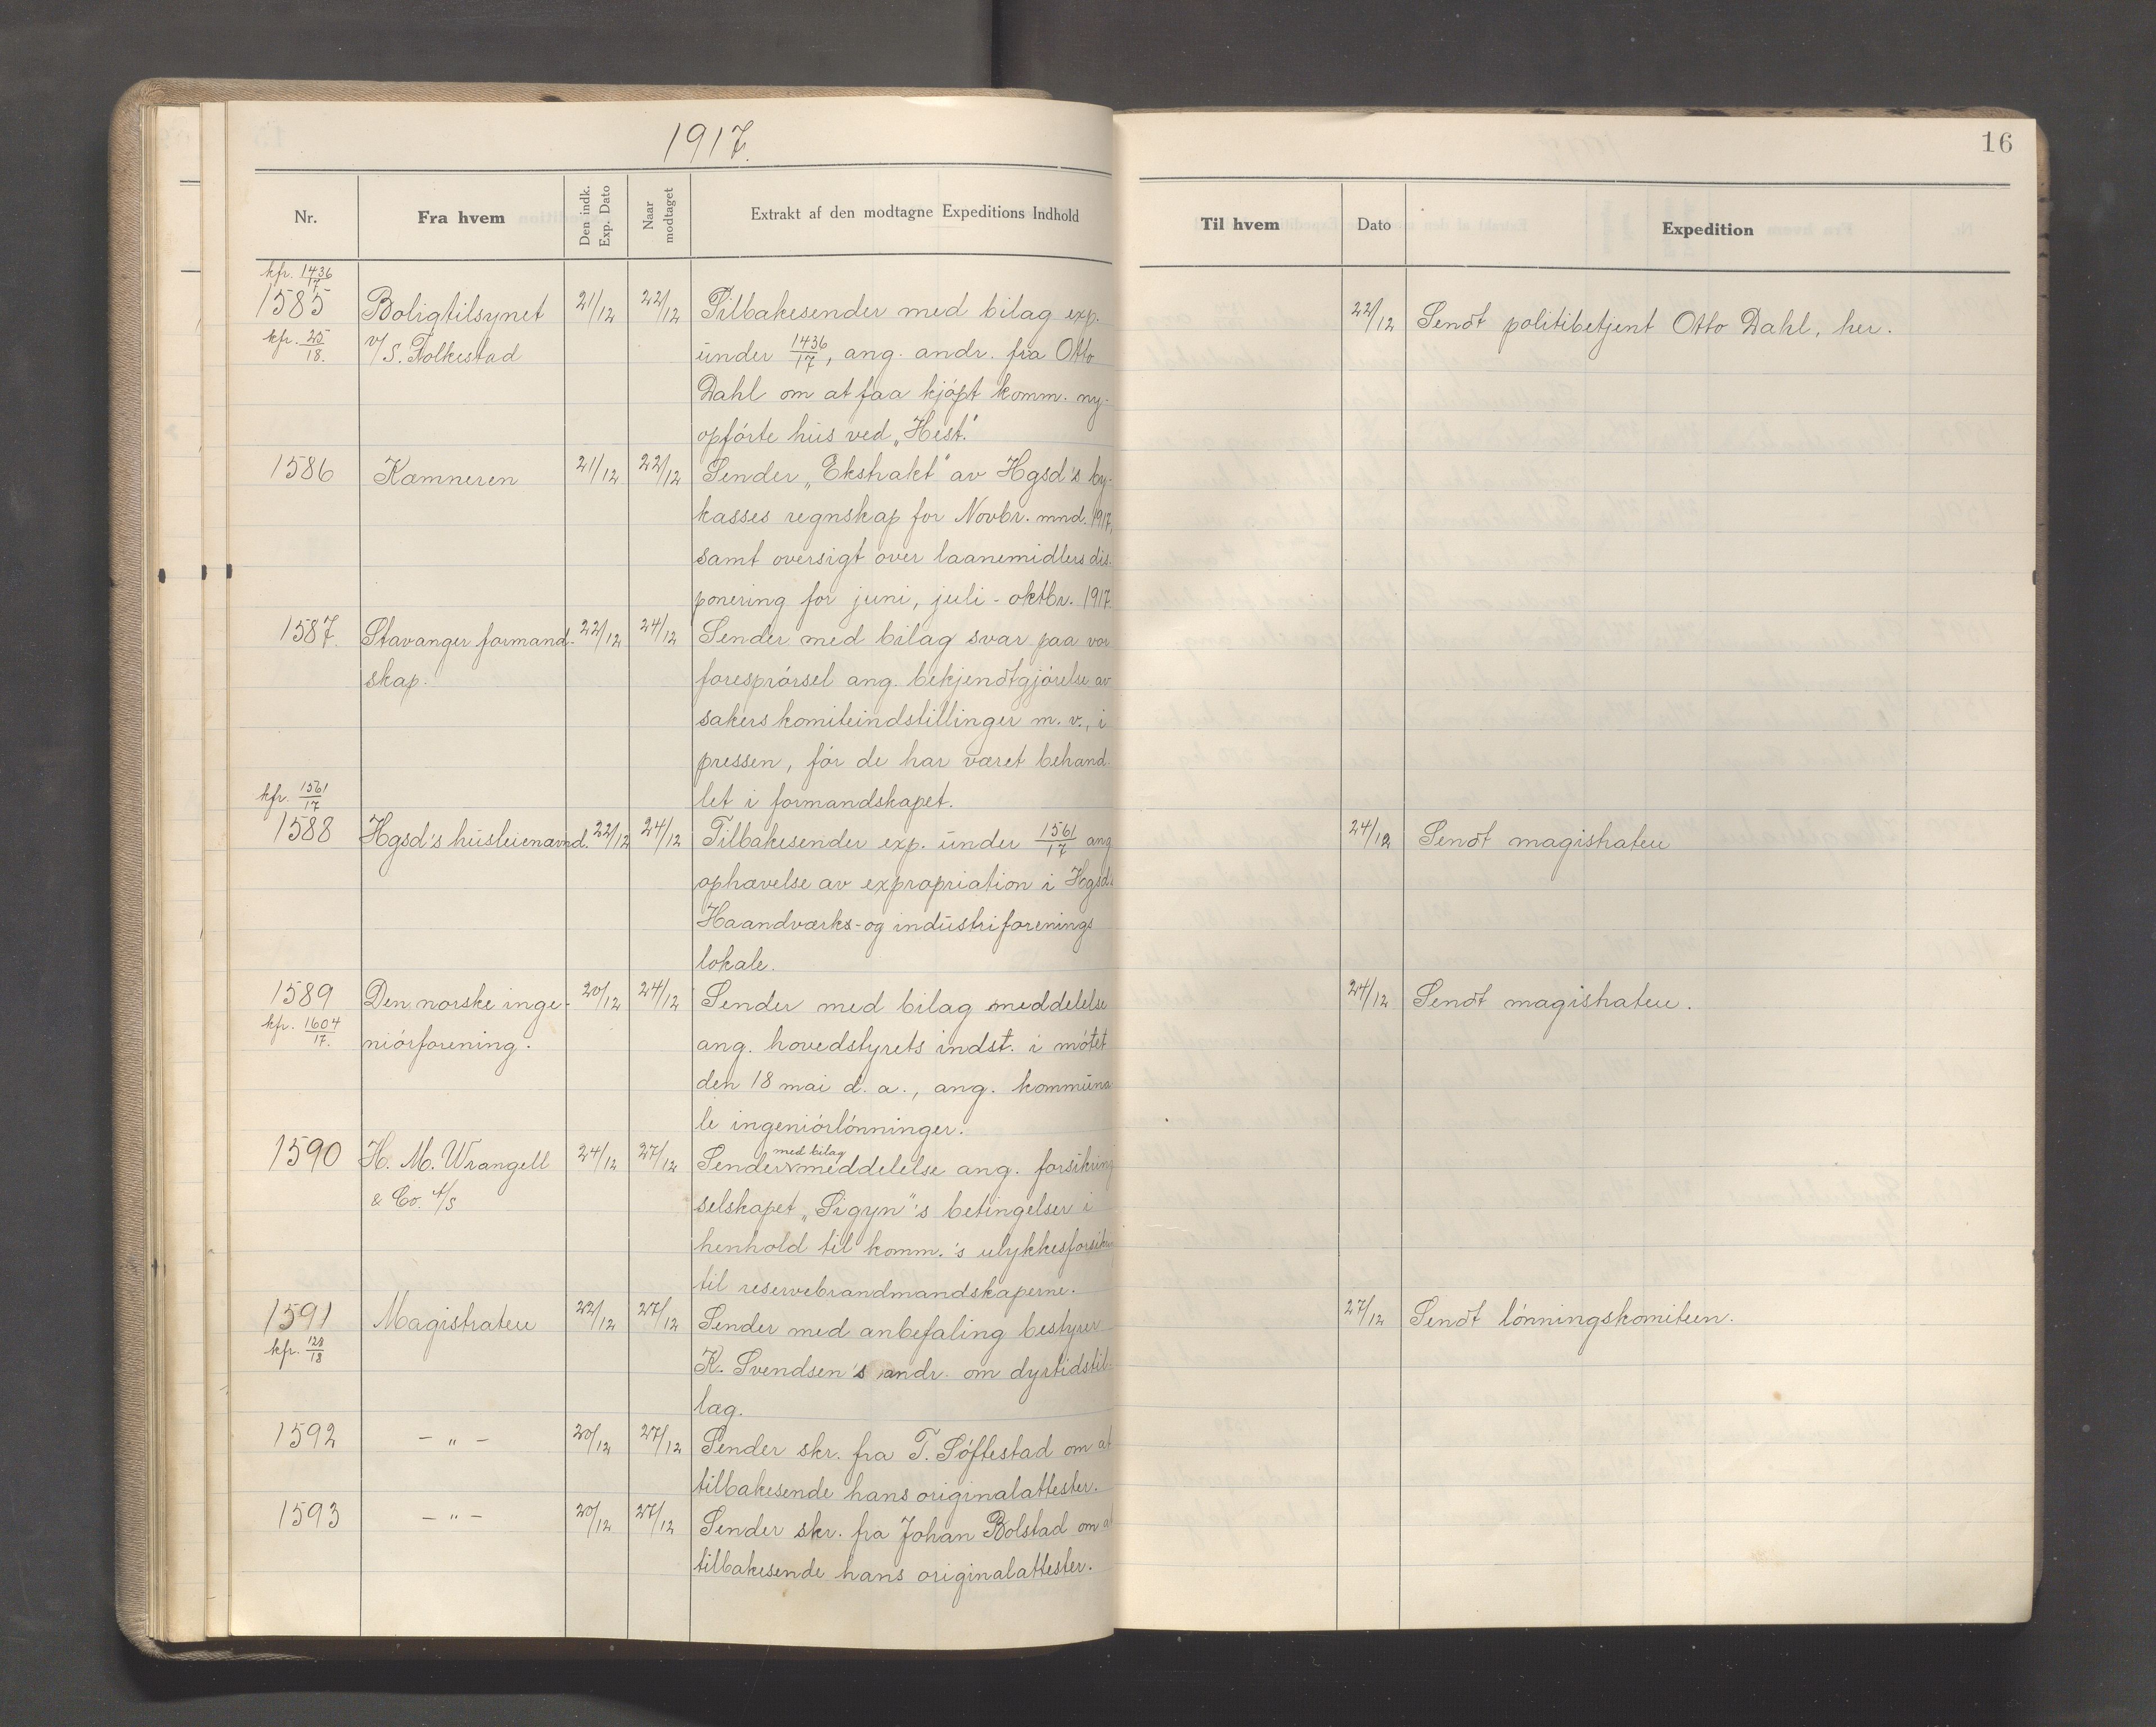 1917.
16
Nr.
Fra hvem
Den indk. Exp. Dato
Naar modtaget
Extrakt af den modtagne Expeditions Indhold
Til hvem
Dato
Expedition
kfr. 1436/17
1585 Boligtilsynet 21/12 22/12 Tilbakesender med bilag exp. 22/12 Sendt politibetjent Otto Dahl, her.
kfr. 25/18. v/ S. Folkestad under 1436/17, ang. andr. fra Otto
Dahl om at faa kjøpt komm. ny-
opførte hus ved „Hest."
1586 Kæmneren 21/12 22/12 Sender „Ekstrakt" av Hgsd's by-
kasses regnskap for Novbr. mnd. 1917,
samt oversigt over laanemidlers dis-
ponering for juni, juli - oktbr. 1917.
1587. Stavanger formand- 22/12 24/12 Sender med bilag svar paa vor
skap. forespørsel ang. bekjendtgjørelse av
sakers komiteindstillinger m. v., i
pressen, før de har været behand-
kfr. 1561/17 let i formandskapet.
1588 Hgsd's husleienævnd. 22/12 24/12 Tilbakesender exp. under 1561/17 ang. 24/12 Sendt magistraten
ophævelse av expropriation i Hgsd's
Haandværks- og industriforenings
lokale.
1589 Den norske inge- 20/12 24/12 Sender med bilag meddelelse 24/12 Sendt magistraten.
kfr. 1604/17. niørforening. ang. hovedstyrets indst. i møtet
den 18 mai d. a., ang. kommuna-
le ingeniørlønninger.
1590 H. M. Wrangell 24/12 27/12 Sender med bilag meddelelse ang. forsikring
& Co. A/S selskapet „Sigyn"'s betingelser i
henhold til komm.'s ulykkesforsikr.
til reservebrandmandskaperne.
1591 Magistraten 22/12 27/12 Sender med anbefaling bestyrer 27/12 Sendt lønningskomiteen.
kfr. 124/18 K. Svendsen's andr. om dyrtidstil-
læg.
1592 - „ - 20/12 27/12 Sender skr. fra T. Søftestad om at
tilbakesende hans originalattester.
1593 - „ - 20/12 27/12 Sender skr. fra Johan Bolstad om at
tilbakesende hans originalattester.